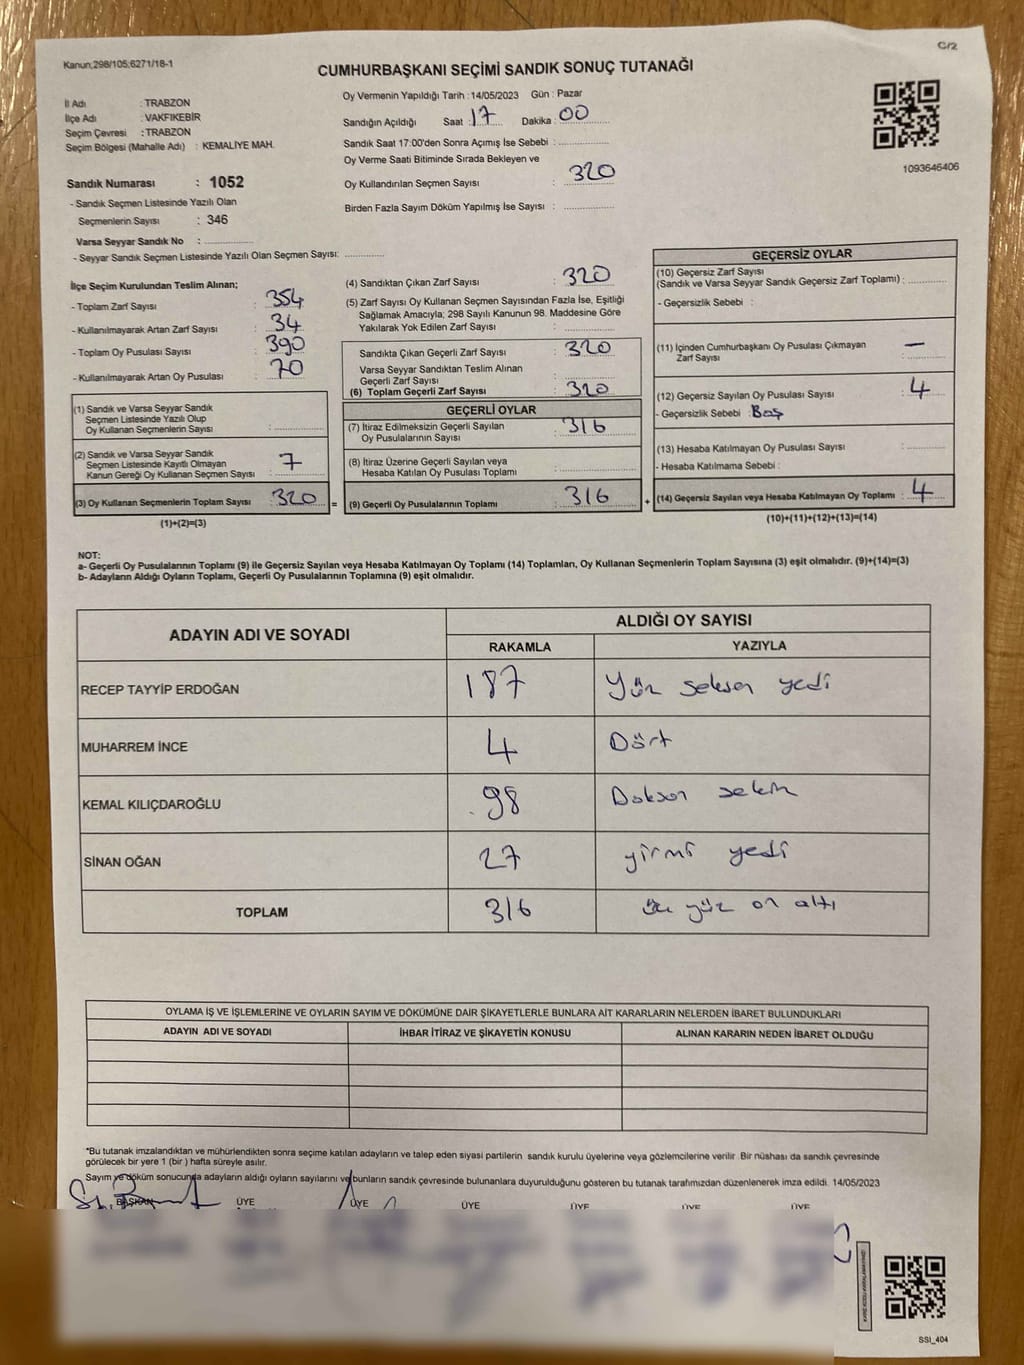 C/2
Kanun;298/105;6271/18-1
CUMHURBAŞKANI SEÇİMİ SANDIK SONUÇ TUTANAĞI
İl Adı : TRABZON
İlçe Adı : VAKFIKEBİR
Seçim Çevresi : TRABZON
Seçim Bölgesi (Mahalle Adı) : KEMALİYE MAH.
Sandık Numarası : 1052
- Sandık Seçmen Listesinde Yazılı Olan
Seçmenlerin Sayısı : 346
Varsa Seyyar Sandık No : ...............
- Seyyar Sandık Seçmen Listesinde Yazılı Olan Seçmen Sayısı: ............
Oy Vermenin Yapıldığı Tarih : 14/05/2023 Gün : Pazar
Sandığın Açıldığı Saat : 17 Dakika : 00
Sandık Saat 17:00'den Sonra Açımış İse Sebebi : ...............
Oy Verme Saati Bitiminde Sırada Bekleyen ve
Oy Kullandırılan Seçmen Sayısı : 320
Birden Fazla Sayım Döküm Yapılmış İse Sayısı : ...............
1093646406
İlçe Seçim Kurulundan Teslim Alınan;
- Toplam Zarf Sayısı : 354
- Kullanılmayarak Artan Zarf Sayısı : 34
- Toplam Oy Pusulası Sayısı : 390
- Kullanılmayarak Artan Oy Pusulası : 70
(1) Sandık ve Varsa Seyyar Sandık
Seçmen Listesinde Yazılı Olup
Oy Kullanan Seçmenlerin Sayısı : ...............
(2) Sandık ve Varsa Seyyar Sandık
Seçmen Listesinde Kayıtlı Olmayan
Kanun Gereği Oy Kullanan Seçmen Sayısı : 7
(3) Oy Kullanan Seçmenlerin Toplam Sayısı : 320
(1)+(2)=(3)
(4) Sandıktan Çıkan Zarf Sayısı : 320
(5) Zarf Sayısı Oy Kullanan Seçmen Sayısından Fazla İse, Eşitliği
Sağlamak Amacıyla; 298 Sayılı Kanunun 98. Maddesine Göre
Yakılarak Yok Edilen Zarf Sayısı : ...............
Sandıkta Çıkan Geçerli Zarf Sayısı : 320
Varsa Seyyar Sandıktan Teslim Alınan
Geçerli Zarf Sayısı : ...............
(6) Toplam Geçerli Zarf Sayısı : 320
GEÇERLİ OYLAR
(7) İtiraz Edilmeksizin Geçerli Sayılan
Oy Pusulalarının Sayısı : 316
(8) İtiraz Üzerine Geçerli Sayılan veya
Hesaba Katılan Oy Pusulası Toplamı : ...............
= (9) Geçerli Oy Pusulalarının Toplamı : 316 +
GEÇERSİZ OYLAR
(10) Geçersiz Zarf Sayısı
(Sandık ve Varsa Seyyar Sandık Geçersiz Zarf Toplamı) : ............
- Geçersizlik Sebebi :
(11) İçinden Cumhurbaşkanı Oy Pusulası Çıkmayan
Zarf Sayısı : —
(12) Geçersiz Sayılan Oy Pusulası Sayısı : 4
- Geçersizlik Sebebi : Boş
(13) Hesaba Katılmayan Oy Pusulası Sayısı : ............
- Hesaba Katılmama Sebebi :
(14) Geçersiz Sayılan veya Hesaba Katılmayan Oy Toplamı : 4
(10)+(11)+(12)+(13)=(14)
NOT:
a- Geçerli Oy Pusulalarının Toplamı (9) ile Geçersiz Sayılan veya Hesaba Katılmayan Oy Toplamı (14) Toplamları, Oy Kullanan Seçmenlerin Toplam Sayısına (3) eşit olmalıdır. (9)+(14)=(3)
b- Adayların Aldığı Oyların Toplamı, Geçerli Oy Pusulalarının Toplamına (9) eşit olmalıdır.
ADAYIN ADI VE SOYADI ALDIĞI OY SAYISI
RAKAMLA YAZIYLA
RECEP TAYYİP ERDOĞAN 187 Yüz seksen yedi
MUHARREM İNCE 4 Dört
KEMAL KILIÇDAROĞLU 98 Doksan sekiz
SİNAN OĞAN 27 yirmi yedi
TOPLAM 316 üç yüz on altı
OYLAMA İŞ VE İŞLEMLERİNE VE OYLARIN SAYIM VE DÖKÜMÜNE DAİR ŞİKAYETLERLE BUNLARA AİT KARARLARIN NELERDEN İBARET BULUNDUKLARI
ADAYIN ADI VE SOYADI İHBAR İTİRAZ VE ŞİKAYETİN KONUSU ALINAN KARARIN NEDEN İBARET OLDUĞU
*Bu tutanak imzalandıktan ve mühürlendikten sonra seçime katılan adayların ve talep eden siyasi partilerin sandık kurulu üyelerine veya gözlemcilerine verilir. Bir nüshası da sandık çevresinde
görülecek bir yere 1 (bir ) hafta süreyle asılır.
Sayım ve döküm sonucunda adayların aldığı oyların sayılarını ve bunların sandık çevresinde bulunanlara duyurulduğunu gösteren bu tutanak tarafımızdan düzenlenerek imza edildi. 14/05/2023
BAŞKAN ÜYE ÜYE ÜYE ÜYE ÜYE ÜYE
SSI_404